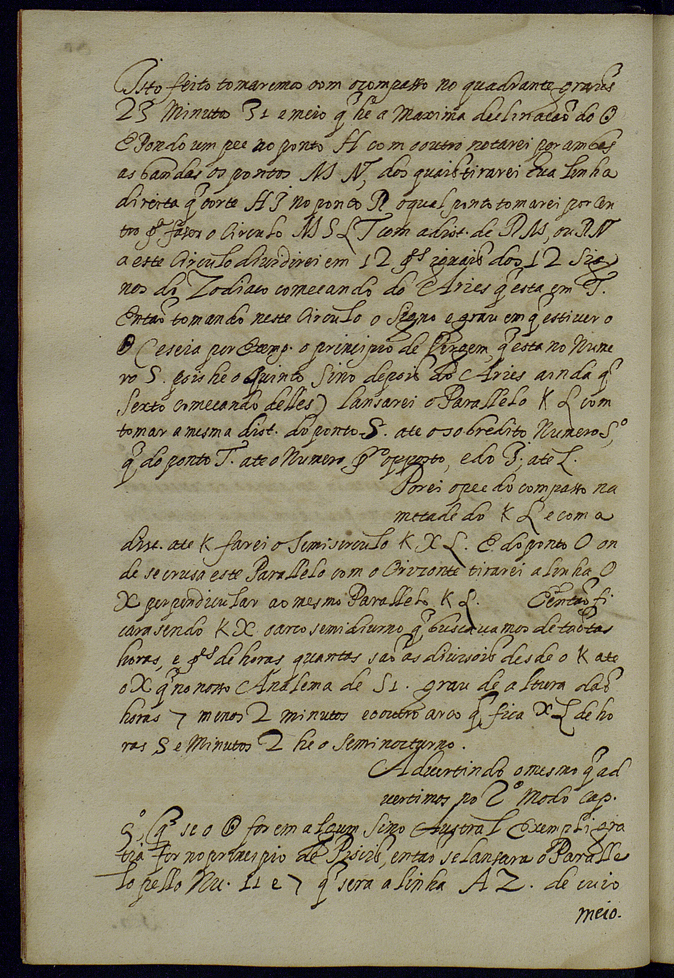 Isto feito tomaremos com o compasso no quadrante graus
23 Minutos 31 e meio q̃ he a Maxima declinacaõ do ☉
E Pondo um pee no ponto H com o outro notarei por ambas
as bandas os pontos M N, dos quais tirarei hũa linha
direita q̃ corte HI no ponto R o qual ponto tomarei por cen
tro p.ª fazer o Circulo M S L T com a dist. de R M, ou R N
a este Circulo dividirei em 12 p.tes eguais dos 12 Sig
nos do Zodiaco comecando do Aries q̃ esta em T.
Entaõ tomando neste Circulo o Signo e grau em q̃ estiver o
☉ (e seia por Exemp. o principio de Virgem q̃ esta no Nume
ro 5. pois he o Quinto Sino depois do Aries ainda q̃
Sexto comecando delles) lansarei o Parallelo K L com
tomar a mesma dist. do ponto S. ate o sobredito Numero 5,º
q̃ do ponto T. ate o Numero opposto, e do I, ate L.
Porei o pee do compasso na
metade do K L e com a
dist. ate K farei o Semicirculo K X L. E do ponto O on
de se crusa este Parallelo com o Orizonte tirarei a linha O
X perpendicular ao mesmo Parallelo K L. E entaõ fi
cara sendo K X o arco semidiurno q̃ buscavamos de tantas
horas, e p.tes de horas quantas saõ as divisois desde o K ate
o X q̃ no nosso Analema de 51. grau de altura daõ
horas 7 menos 2 minutos e o outro arco q̃ fica X L de ho
ras 5 e Minutos 2 he o Seminocturno.
Advertindo o mesmo q̃ ad
vertimos no 2º Modo cap.
5º, q̃ se o ☉ for em algum Sino Austral exempli gra
tia for no principio de Piscis, entaõ se lansara o Paralle
lo pello Nu. 11 e 7 q̃ sera a linha A Z. de cuio
meio.